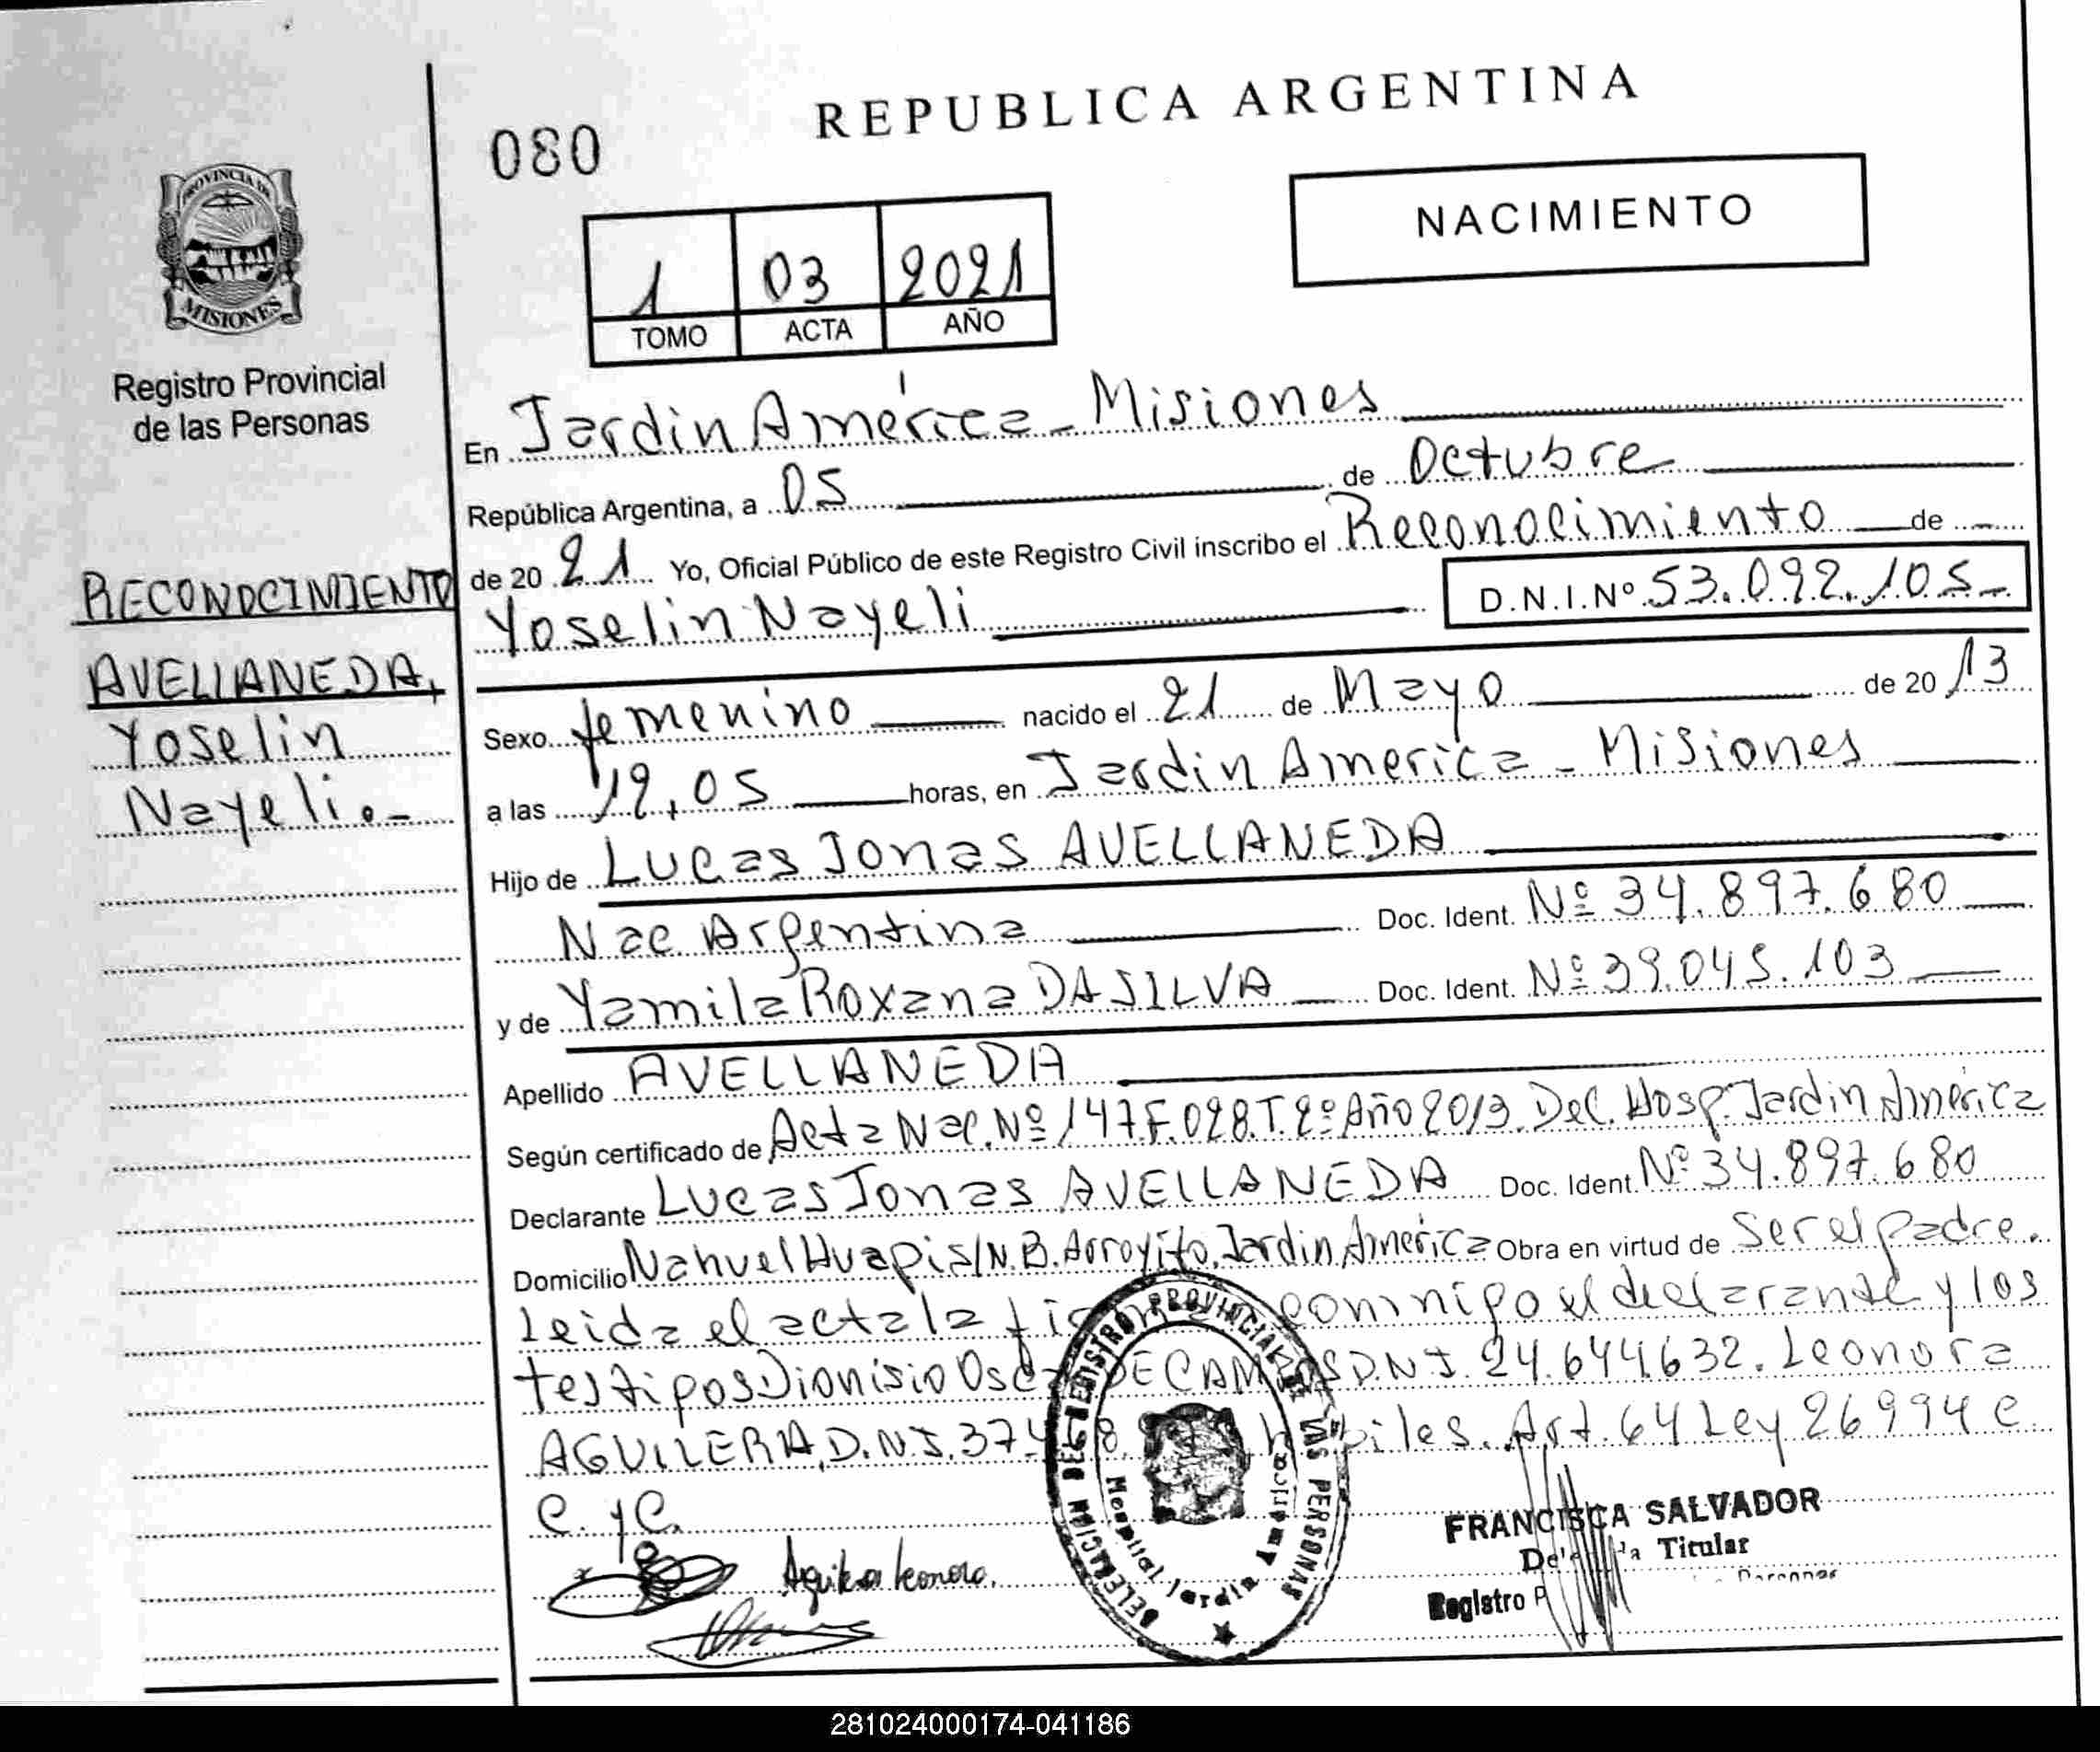 REPUBLICA ARGENTINA
080
NACIMIENTO
1 03 2021
TOMO ACTA AÑO
PROVINCIA DE
MISIONES
Registro Provincial
de las Personas
RECONOCIMIENTO
AVELLANEDA,
Yoselin
Nayeli.-
En Jardin América - Misiones
República Argentina, a 05 de Octubre
de 20 21 Yo, Oficial Público de este Registro Civil inscribo el Reconocimiento de
Yoselin Nayeli D.N.I.Nº 53.092.105-
Sexo femenino nacido el 21 de Mayo de 20 13
a las 19,05 horas, en Jardin America - Misiones
Hijo de Lucas Jonas AVELLANEDA
Nac Argentina Doc. Ident. Nº 34.897.680
y de Yamila Roxana DA SILVA Doc. Ident. Nº 39.045.103
Apellido AVELLANEDA
Según certificado de Acta Nac. Nº 147 F.028.T.2º Año 2013. Del. Hosp. Jardin América
Declarante Lucas Jonas AVELLANEDA Doc. Ident. Nº 34.897.680
Domicilio Nahuel Huapi s/N. B. Arroyito. Jardin América Obra en virtud de Ser el padre.
Leida el acta la conmigo el declarante y los
testigos Dionisio D.N.I. 24.644.632. Leonora
AGUILERA, D.N.I. 37 Art. 64 Ley 26994 C.
C. y C.
Aguilera Leonora.
DELEGACION DEL REGISTRO PROVINCIAL DE LAS PERSONAS
Hospital Jardín América
FRANCISCA SALVADOR
Titular
Registro
281024000174-041186